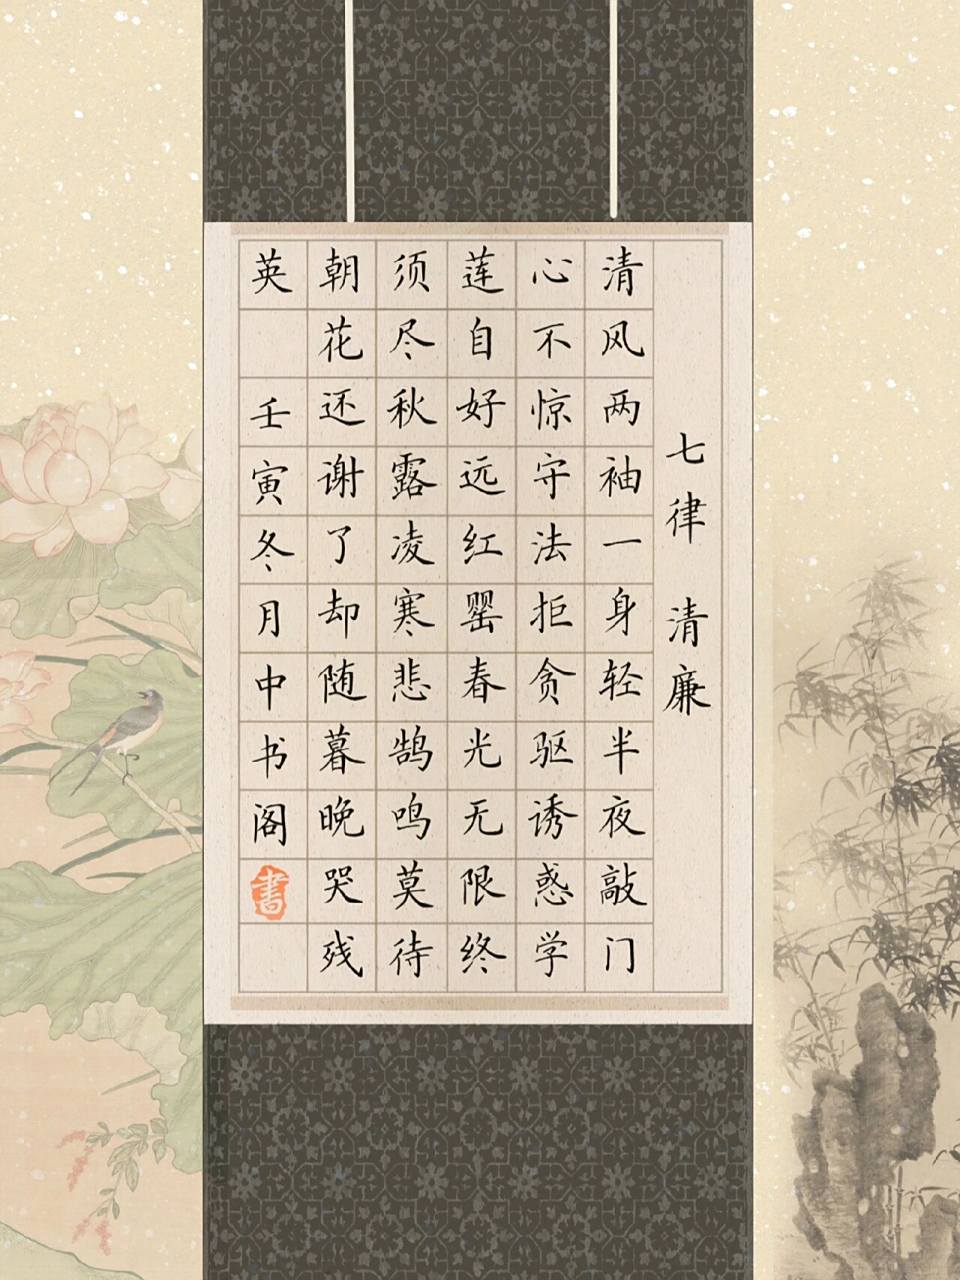 七律 清廉
清风两袖一身轻半夜敲门
心不惊守法拒贪驱诱惑学
莲自好远红罂春光无限终
须尽秋露凌寒悲鹄鸣莫待
朝花还谢了却随暮晚哭残
英 壬寅冬月中书阁
書